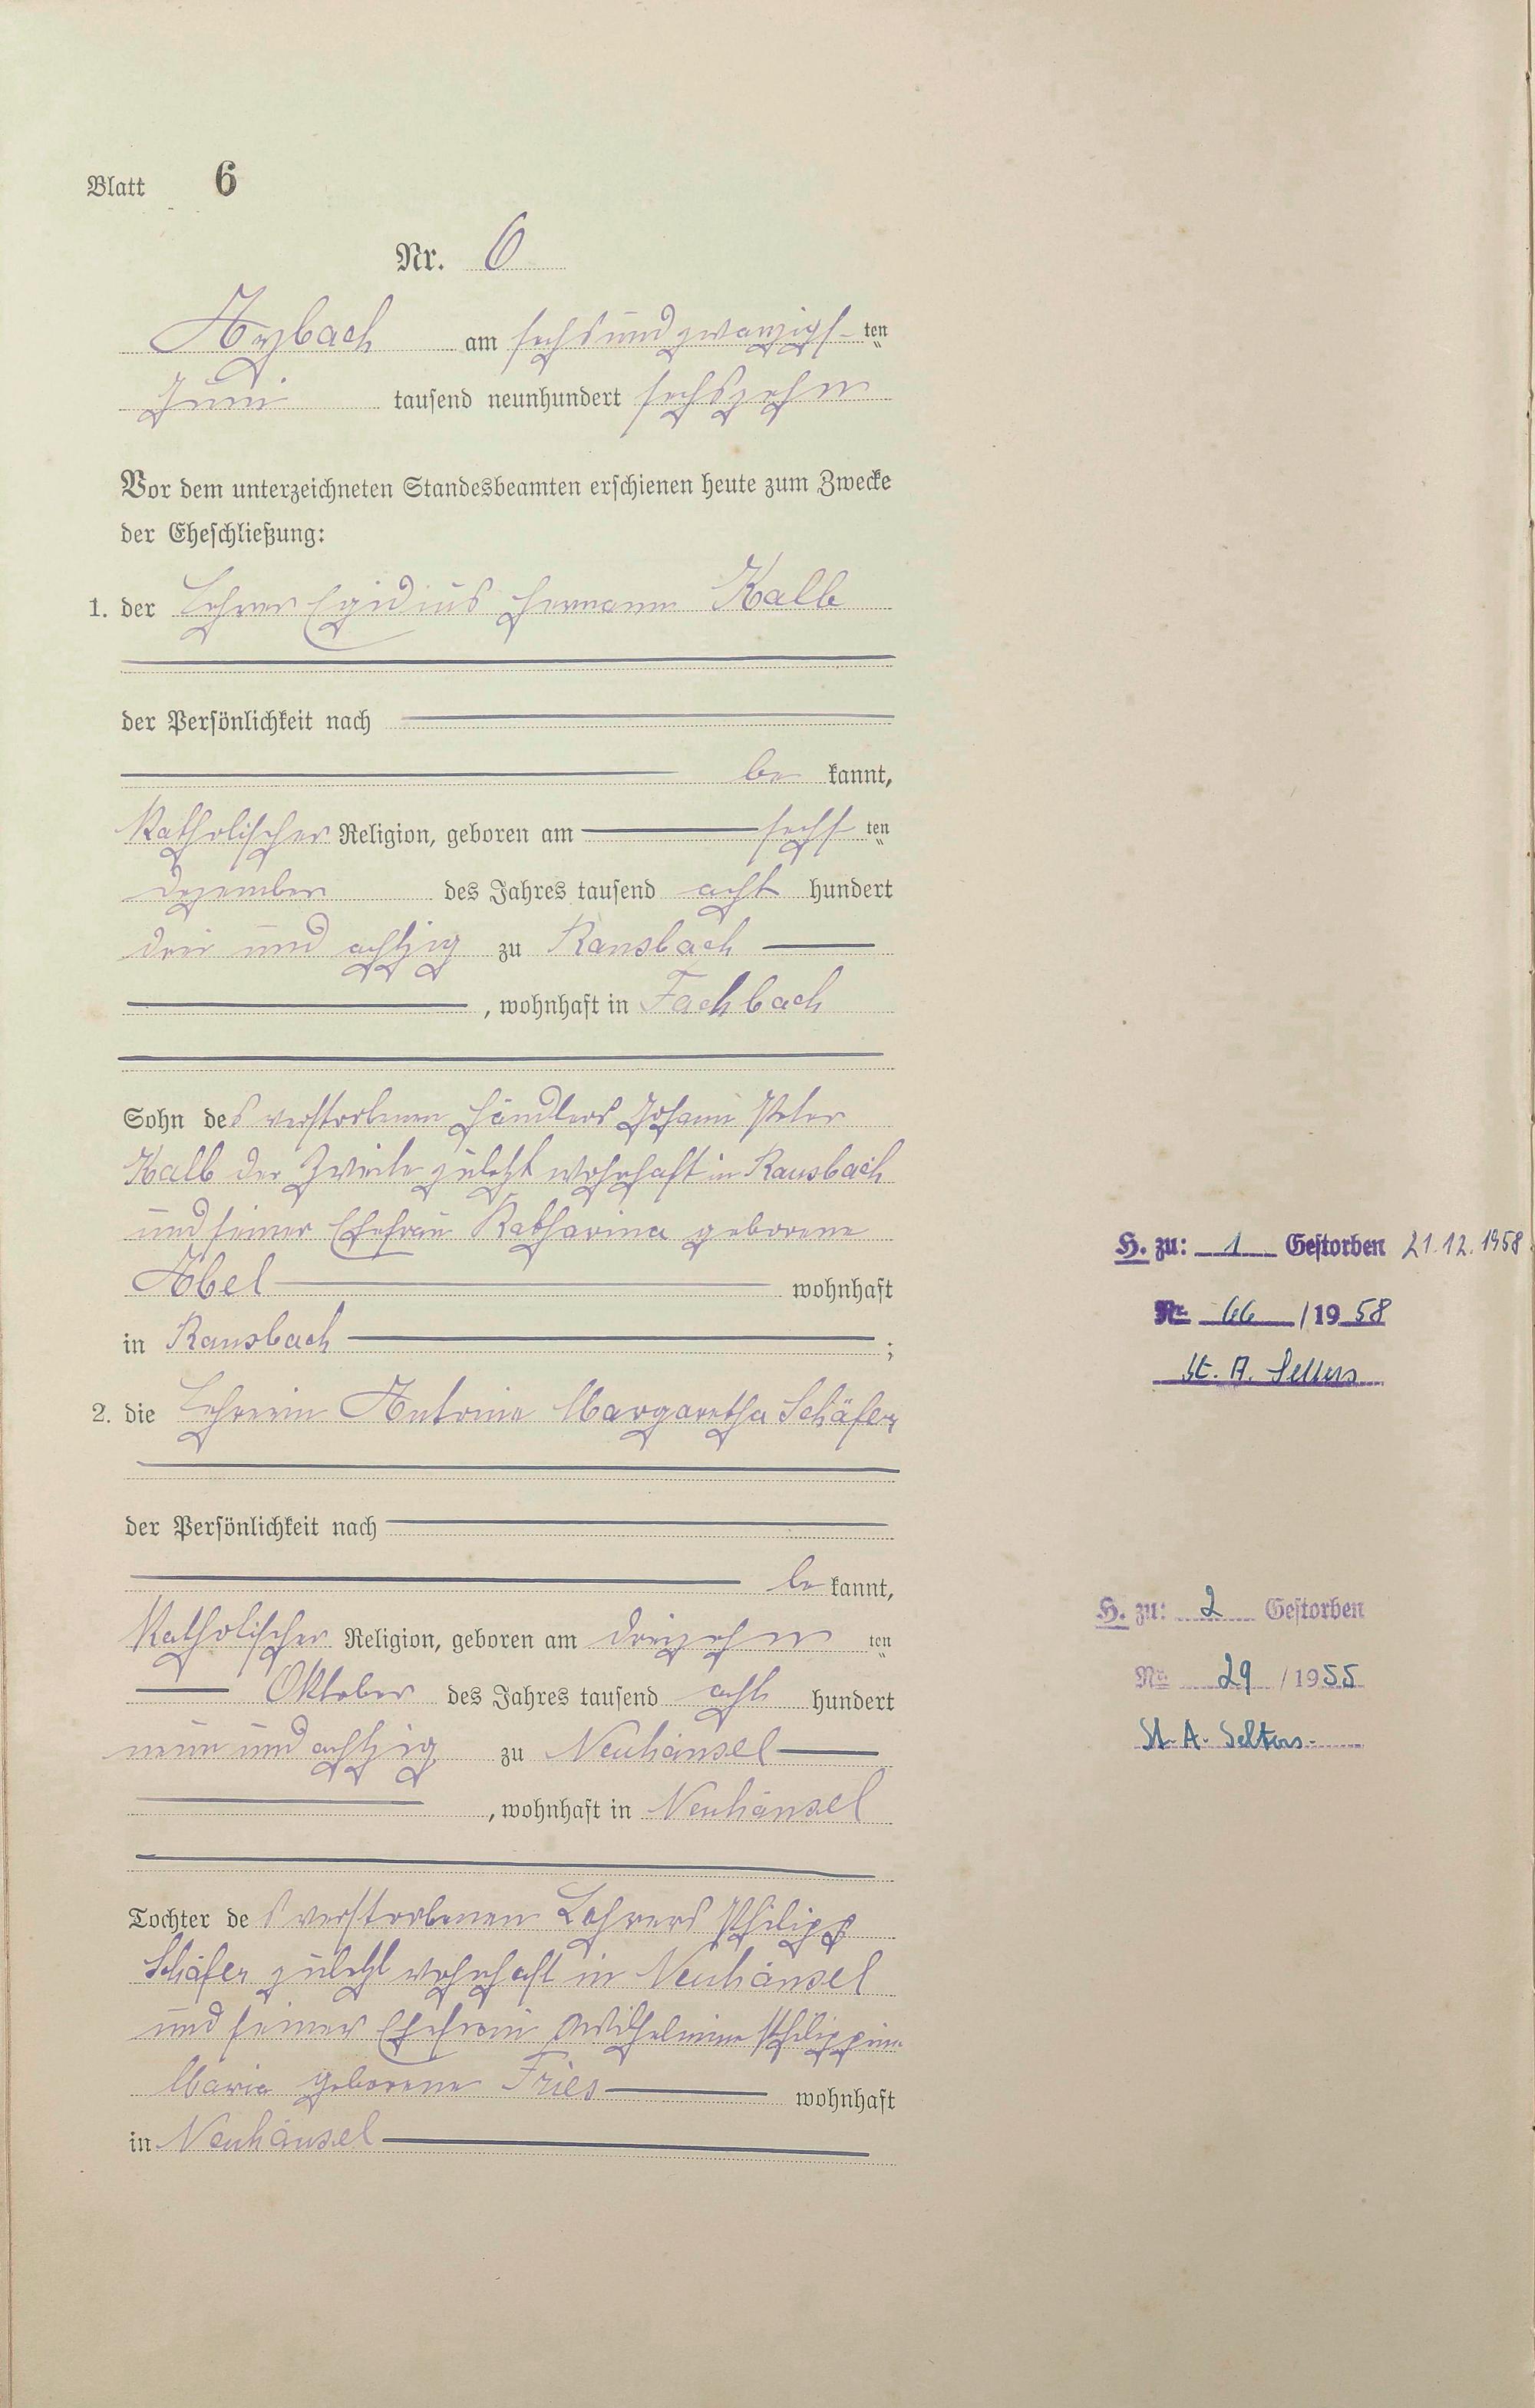 Blatt 6
Nr. 6
Arzbach am sechsundzwanzigs-ten
Juni tausend neunhundert sechszehn
Vor dem unterzeichneten Standesbeamten erschienen heute zum Zwecke
der Eheschließung:
1. der Lehrer Egidius Hermann Kalb
der Persönlichkeit nach
be kannt,
katholischer Religion, geboren am sechsten
Dezember des Jahres tausend acht hundert
drei und achtzig zu Ransbach
, wohnhaft in Fachbach
Sohn des verstorbenen Händlers Johann Peter
Kalb der Zweite zuletzt wohnhaft in Ransbach
und seiner Ehefrau Katharina geborene
Abel wohnhaft
in Ransbach ;
2. die Lehrerin Antonie Margaretha Schäfer
der Persönlichkeit nach
be kannt,
katholischer Religion, geboren am dreizehn ten
Oktober des Jahres tausend acht hundert
neun und achtzig zu Neuhäusel
, wohnhaft in Neuhäusel
Tochter des verstorbenen Lehrers Philipp
Schäfer zuletzt wohnhaft in Neuhäusel
und seiner Ehefrau Wilhelmine Philippine
Maria geborene Fries wohnhaft
in Neuhäusel
H. zu: 1 Gestorben 21.12.1958
Nr. 66 /1958
St. A. Selters
H. zu: 2 Gestorben
Nr. 29 /1955
St. A. Selters